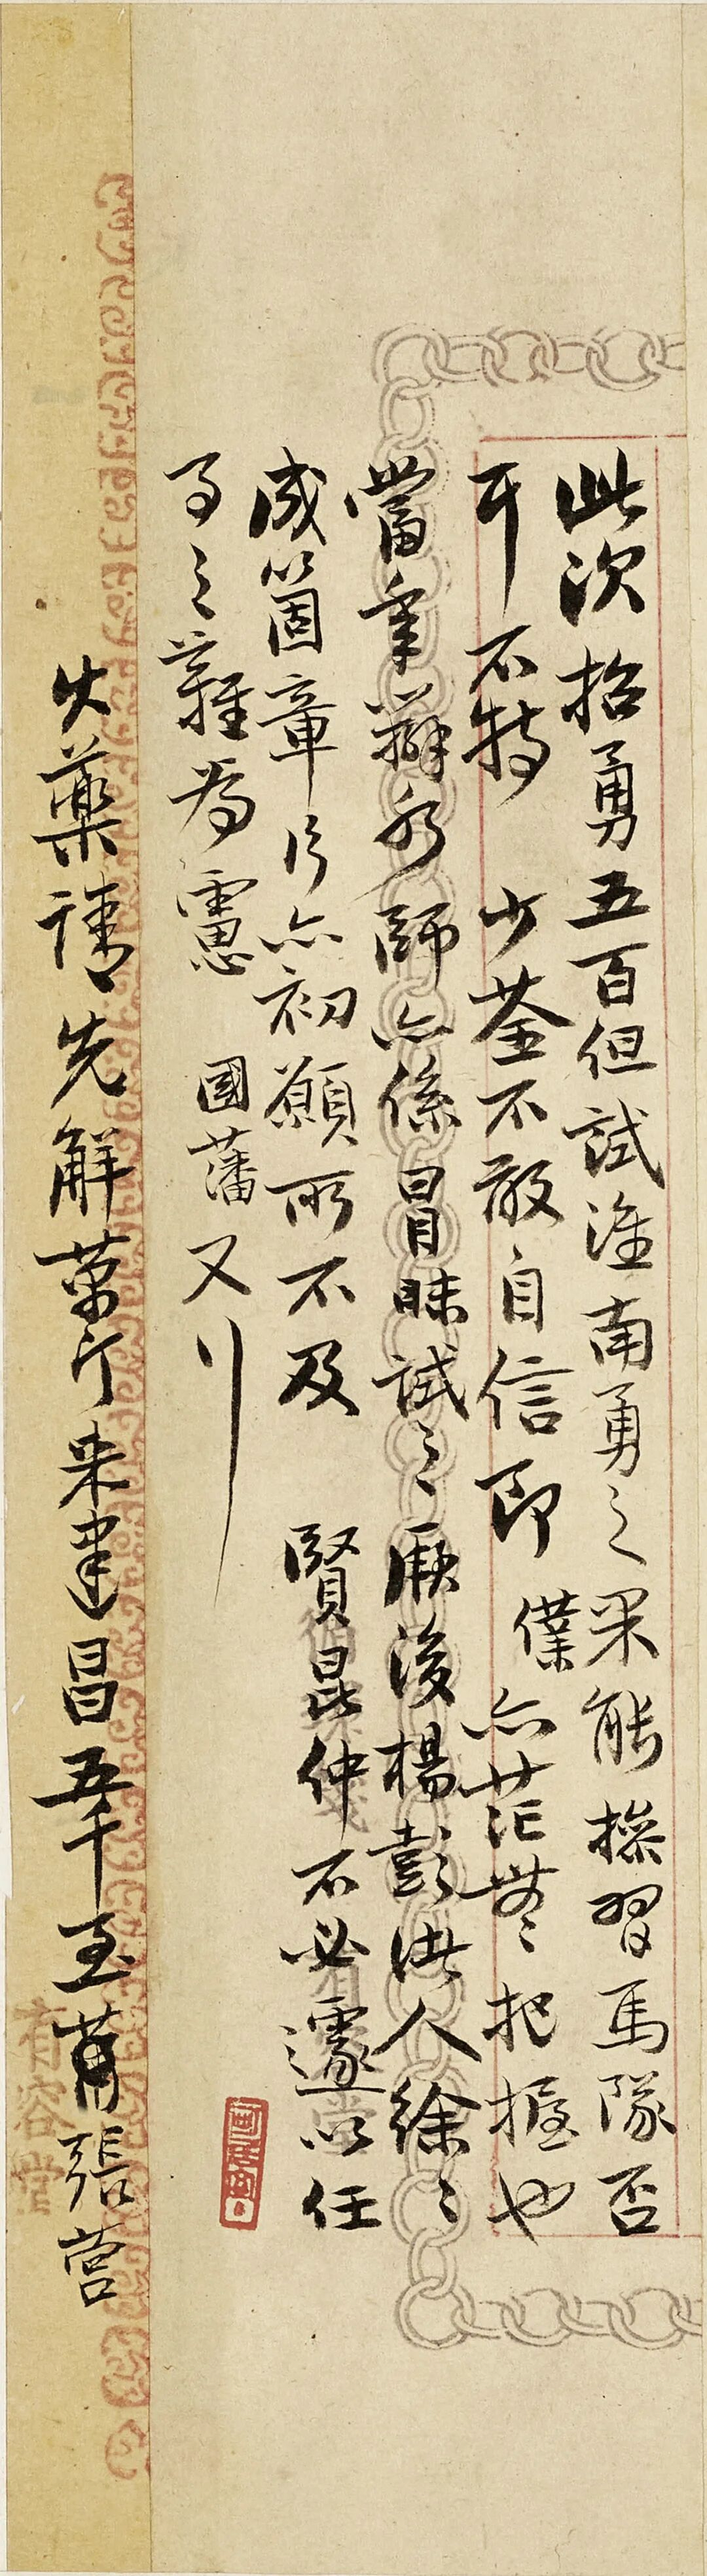 此次招勇五百但試淮南勇之果能操習馬隊否
耳不特 少荃不敢自信即 僕亦茫無把握也
當年辦水師亦係冒昧試之厥後楊彭諸人徐〻
成箇章片亦初願所不及 賢昆仲不必遽以任
事之難為慮 國藩又行
火藥請先解萬斤來建昌五千至黃張營
有容堂